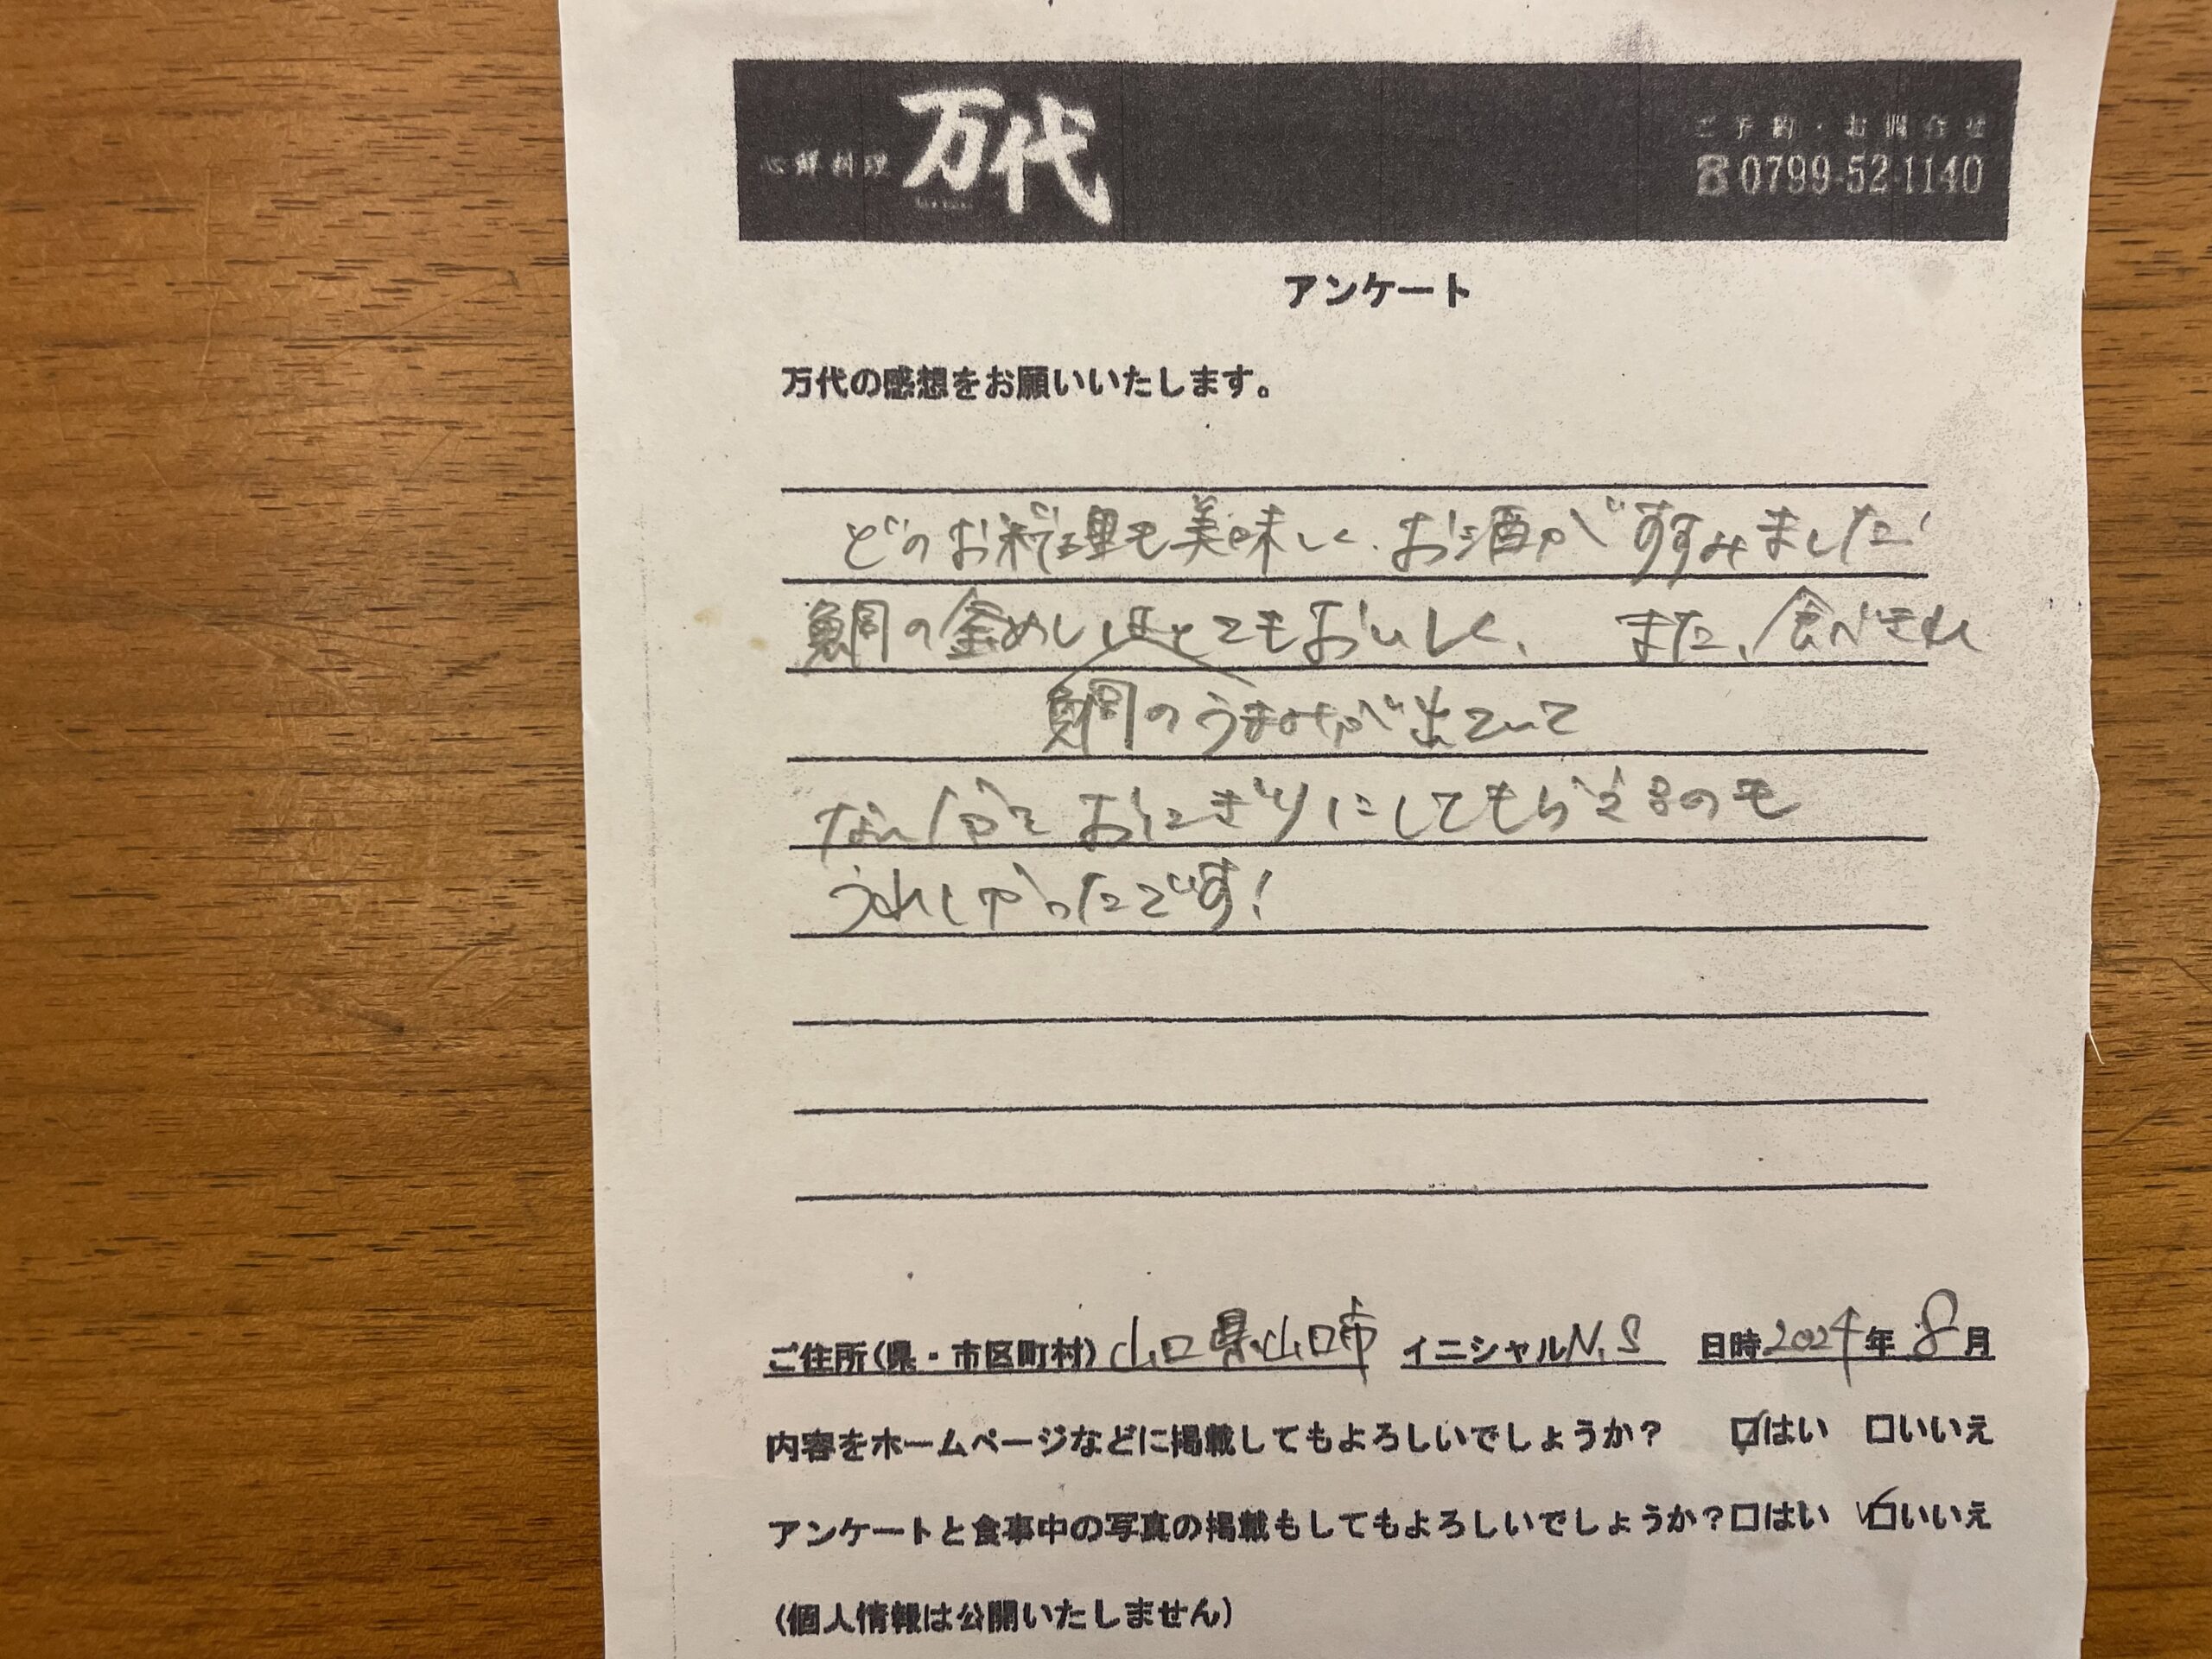 心鮮料理 万代
ご予約・お問合せ
☎0799-52-1140
アンケート
万代の感想をお願いいたします。
どのお料理も美味しく、お酒がすすみました!
鯛の釜めしはとてもおいしく、また、食べきれ
鯛のうまみが出ていて
ない分をおにぎりにしてもらえるのも
うれしかったです!
ご住所(県・市区町村) 山口県山口市 イニシャル N.S 日時 2024年 8月
内容をホームページなどに掲載してもよろしいでしょうか? ☑はい □いいえ
アンケートと食事中の写真の掲載もしてもよろしいでしょうか?□はい ☑いいえ
(個人情報は公開いたしません)